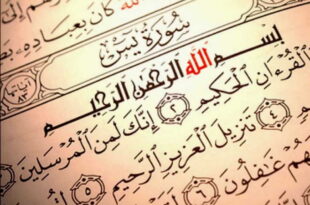 هُمْ إِلَىٰ
اللَّهَ كَانَ بِعِبَادِهِ
سُورَةُ يسٓ
٨٣
بِسْمِ اللَّهِ الرَّحْمَٰنِ الرَّحِيمِ
الْقُرْءَانِ الْحَكِيمِ ٢ إِنَّكَ لَمِنَ الْمُرْسَلِينَ
٤ تَنزِيلَ الْعَزِيزِ الرَّحِيمِ ٥
هُمْ غَٰفِلُونَ ٦